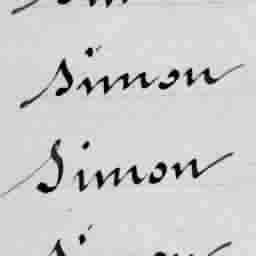 simon
Simon